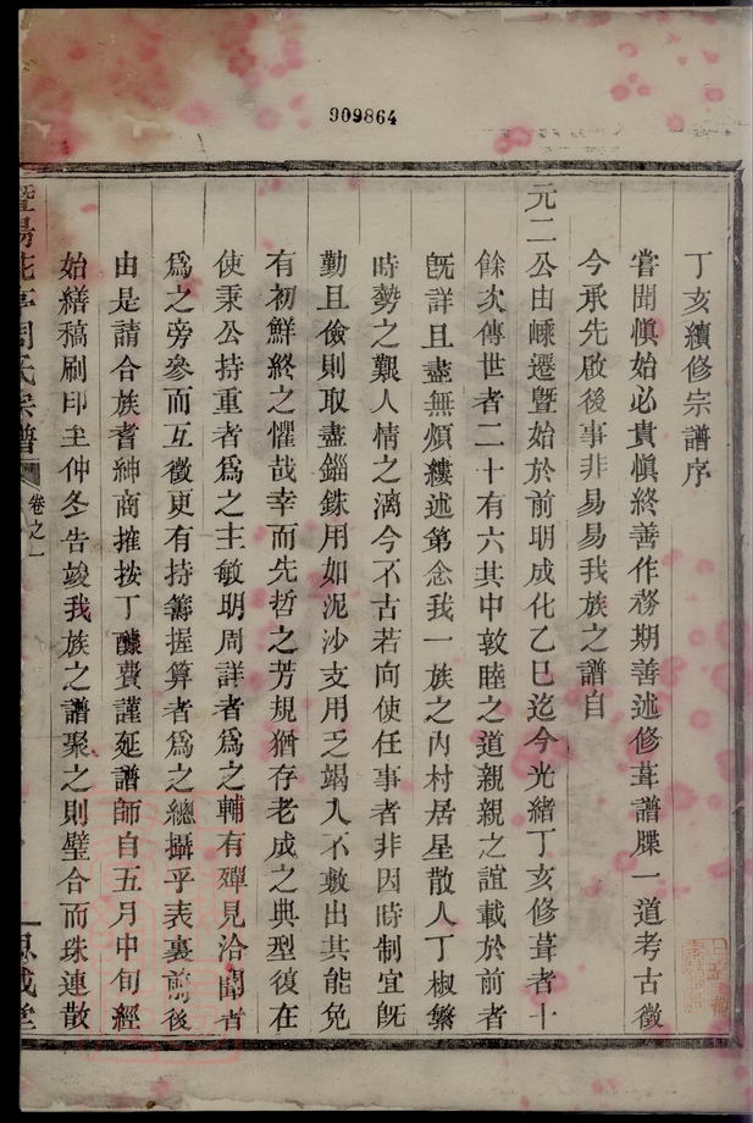 909864
丁亥續修宗譜序
嘗聞愼始必貴愼終善作務期善述修葺譜牒一道考古徵
今承先啟後事非易易我族之譜自
元二公由嵊遷曁始於前明成化乙巳迄今光緒丁亥修葺者十
餘次傳世者二十有六其中敦睦之道親親之誼載於前者
旣詳且盡無煩縷述第念我一族之內村居星散人丁椒蘩
時勢之艱人情之漓今不古若向使任事者非因時制宜旣
勤且儉則取盡錙銖用如泥沙支用乏竭入不敷出其能免
有初鮮終之懼哉幸而先哲之芳規猶存老成之典型復在
使秉公持重者爲之主敏明周詳者爲之輔有殫見洽聞者
爲之旁參而互徵更有持籌握算者爲之總攝乎表裏前後
由是請合族耆紳商搉按丁醵費謹延譜師自五月中旬經
始繕稿刷印至仲冬告竣我族之譜聚之則璧合而珠連散
曁陽花亭周氏宗譜
卷之一
一